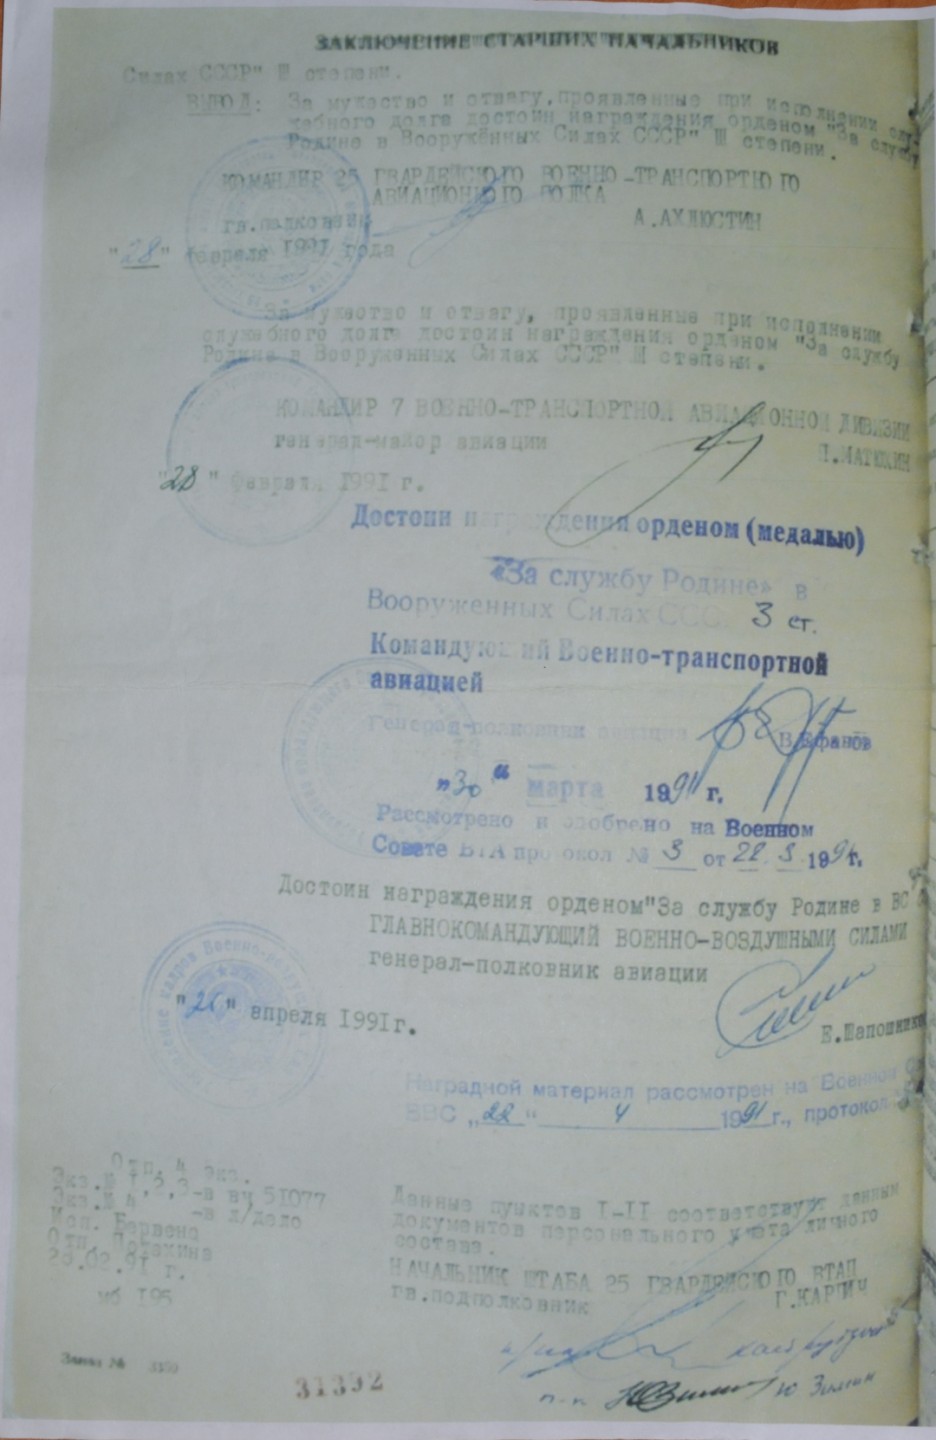 ЗАКЛЮЧЕНИЕ СТАРШИХ НАЧАЛЬНИКОВ
Силах СССР" Ш степени.
ВЫВОД: За мужество и отвагу, проявленные при исполнении слу-
жебного долга достоин награждения орденом "За службу
Родине в Вооружённых Силах СССР" Ш степени.
КОМАНДИР 25 ГВАРДЕЙСКОГО ВОЕННО-ТРАНСПОРТНОГО
АВИАЦИОННОГО ПОЛКА
гв.полковник
А.АХЛЮСТИН
"28" февраля 1991 года
За мужество и отвагу, проявленные при исполнении
служебного долга достоин награждения орденом "За службу
Родине в Вооруженных Силах СССР" Ш степени.
КОМАНДИР 7 ВОЕННО-ТРАНСПОРТНОЙ АВИАЦИОННОЙ ДИВИЗИИ
генерал-майор авиации
МАТЮХИН
"28" февраля 1991 г.
Достоин награждения орденом (медалью)
«За службу Родине» в
Вооруженных Силах ССС. 3 ст.
Командующий Военно-транспортной
авиацией
Генерал-полковник авиации В.Ефанов
"30" марта 1991 г.
Рассмотрено и одобрено на Военном
Совете ВТА протокол № 3 от 22. 3 1991г.
Достоин награждения орденом"За службу Родине в ВС
ГЛАВНОКОМАНДУЮЩИЙ ВОЕННО-ВОЗДУШНЫМИ СИЛАМИ
генерал-полковник авиации
"26" апреля 1991г.
Е.Шапошников
Наградной материал рассмотрен на Военном
ВВС „22" 4 1991г., протокол
Отп. 4 экз.
Экз.№ 1,2,3-в вч 51077
Экз.№ 4 -в л/дело
Исп. Бервено
Отп. Потехина
28.02.91 г.
мб 195
Данные пунктов I-II соответствуют данным
документов персонального учета личного
состава.
НАЧАЛЬНИК ШТАБА 25 ГВАРДЕЙСКОГО ВТАП
гв.подполковник
Г.КАРПИЧ
п-к Ю Зимин
Заказ №
31392